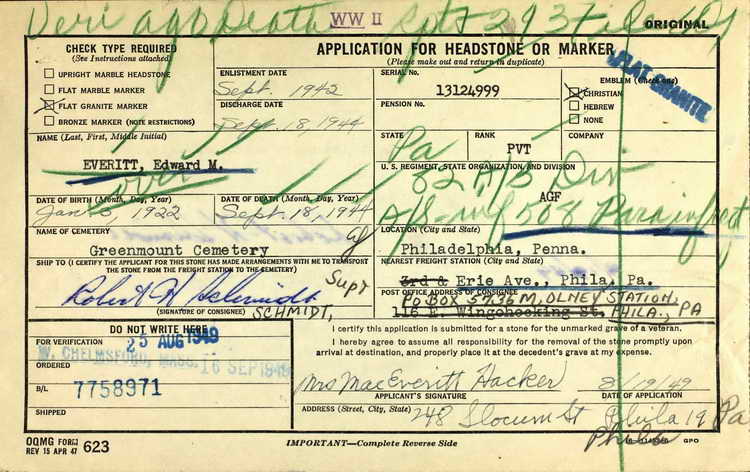 Veri
Death
WW II
ORIGINAL
CHECK TYPE REQUIRED
(See Instructions attached)
UPRIGHT MARBLE HEADSTONE
FLAT MARBLE MARKER
FLAT GRANITE MARKER
BRONZE MARKER (NOTE RESTRICTIONS)
APPLICATION FOR HEADSTONE OR MARKER
(Please make out and return in duplicate)
ENLISTMENT DATE
Sept. 1942
DISCHARGE DATE
Sept. 18, 1944
SERIAL No.
13124999
PENSION No.
EMBLEM (Check one)
CHRISTIAN
HEBREW
NONE
FLAT GRANITE
NAME (Last, First, Middle Initial)
EVERITT, Edward M.
over
STATE
Pa
RANK
PVT
COMPANY
U. S. REGIMENT, STATE ORGANIZATION, AND DIVISION
82 A/B Div
AGF
508 Parainf
DATE OF BIRTH (Month, Day, Year)
Jan 5, 1922
DATE OF DEATH (Month, Day, Year)
Sept. 18, 1944
NAME OF CEMETERY
Greenmount Cemetery
LOCATION (City and State)
Philadelphia, Penna.
SHIP TO (I CERTIFY THE APPLICANT FOR THIS STONE HAS MADE ARRANGEMENTS WITH ME TO TRANSPORT
THE STONE FROM THE FREIGHT STATION TO THE CEMETERY)
Robert H Schmidt
Supt
(SIGNATURE OF CONSIGNEE)
SCHMIDT,
NEAREST FREIGHT STATION (City and State)
3rd & Erie Ave., Phila, Pa.
POST OFFICE ADDRESS OF CONSIGNEE
PO BOX 5736 M, OLNEY STATION,
116 E. Wingohocking St. PHILA., PA
DO NOT WRITE HERE
FOR VERIFICATION
25 AUG 1949
W. CHELMSFORD, MASS. 16 SEP 1949
ORDERED
B/L
7758971
SHIPPED
I certify this application is submitted for a stone for the unmarked grave of a veteran.
I hereby agree to assume all responsibility for the removal of the stone promptly
upon arrival at destination, and properly place it at the decedent's grave at my expense.
Mrs Mae Everitt Hacker
8/19/49
APPLICANT'S SIGNATURE
DATE OF APPLICATION
ADDRESS (Street, City, State)
248 Slocum St Phila 19 Pa
Phila
OQMG FORM
REV 15 APR 47
623
IMPORTANT—Complete Reverse Side
GPO